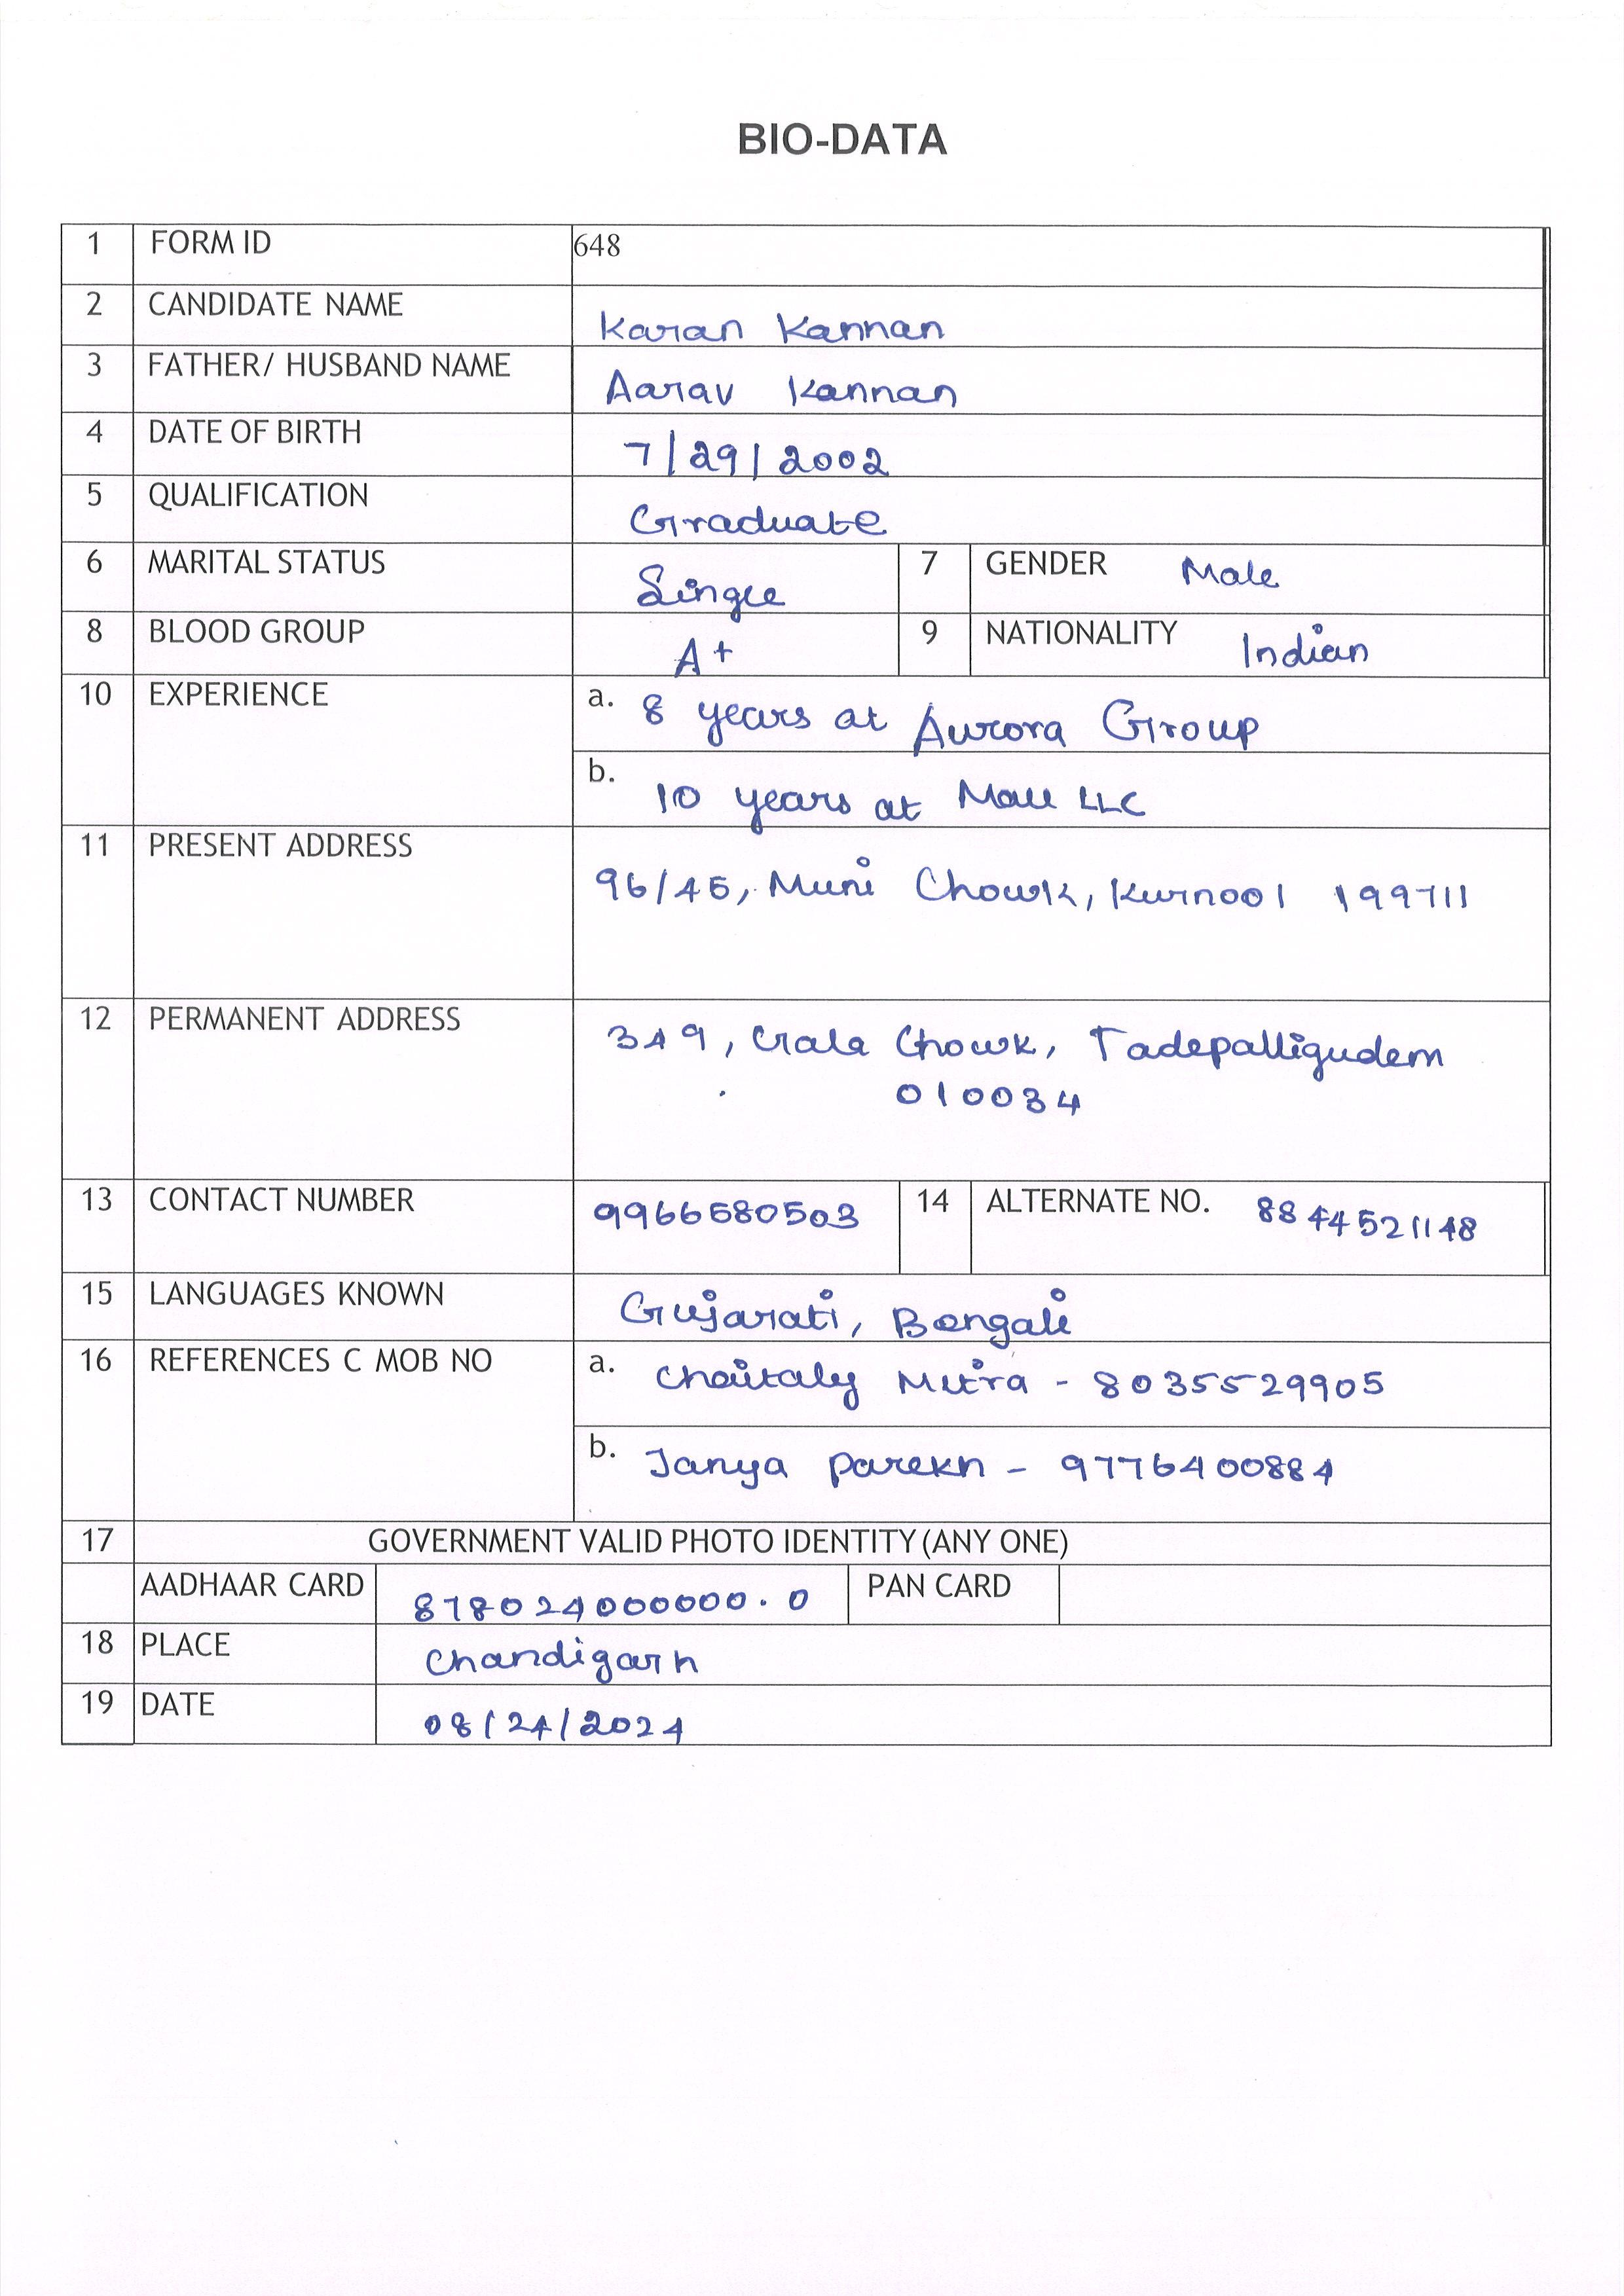 BIO-DATA
1 FORM ID 648
2 CANDIDATE NAME Karan Kannan
3 FATHER/ HUSBAND NAME Aarav Kannan
4 DATE OF BIRTH 7/29/2002
5 QUALIFICATION Graduate
6 MARITAL STATUS Single 7 GENDER Male
8 BLOOD GROUP A+ 9 NATIONALITY Indian
10 EXPERIENCE a. 8 years at Aurora Group
b. 10 years at Mall LLC
11 PRESENT ADDRESS 96/45, Muni Chowk, Kurnool 199711
12 PERMANENT ADDRESS 349, Gala Chowk, Tadepalligudem
010034
13 CONTACT NUMBER 9966580503 14 ALTERNATE NO. 8844521148
15 LANGUAGES KNOWN Gujarati, Bengali
16 REFERENCES C MOB NO a. Chaitaly Mitra - 8035529905
b. Janya Parekh - 9776400884
17 GOVERNMENT VALID PHOTO IDENTITY (ANY ONE)
AADHAAR CARD 878024000000.0 PAN CARD
18 PLACE Chandigarh
19 DATE 08/24/2024